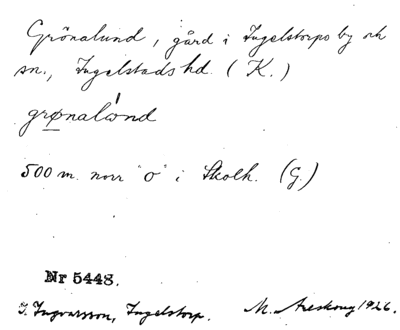 Grönalund, gård i Ingelstorps by och
sn., Ingelstads hd. (K.)
grønalωnd
500 m. norr "o" i Skolh. (G.)
Nr 5448.
I. Ingvarsson, Ingelstorp. M. Areskoug 1926.